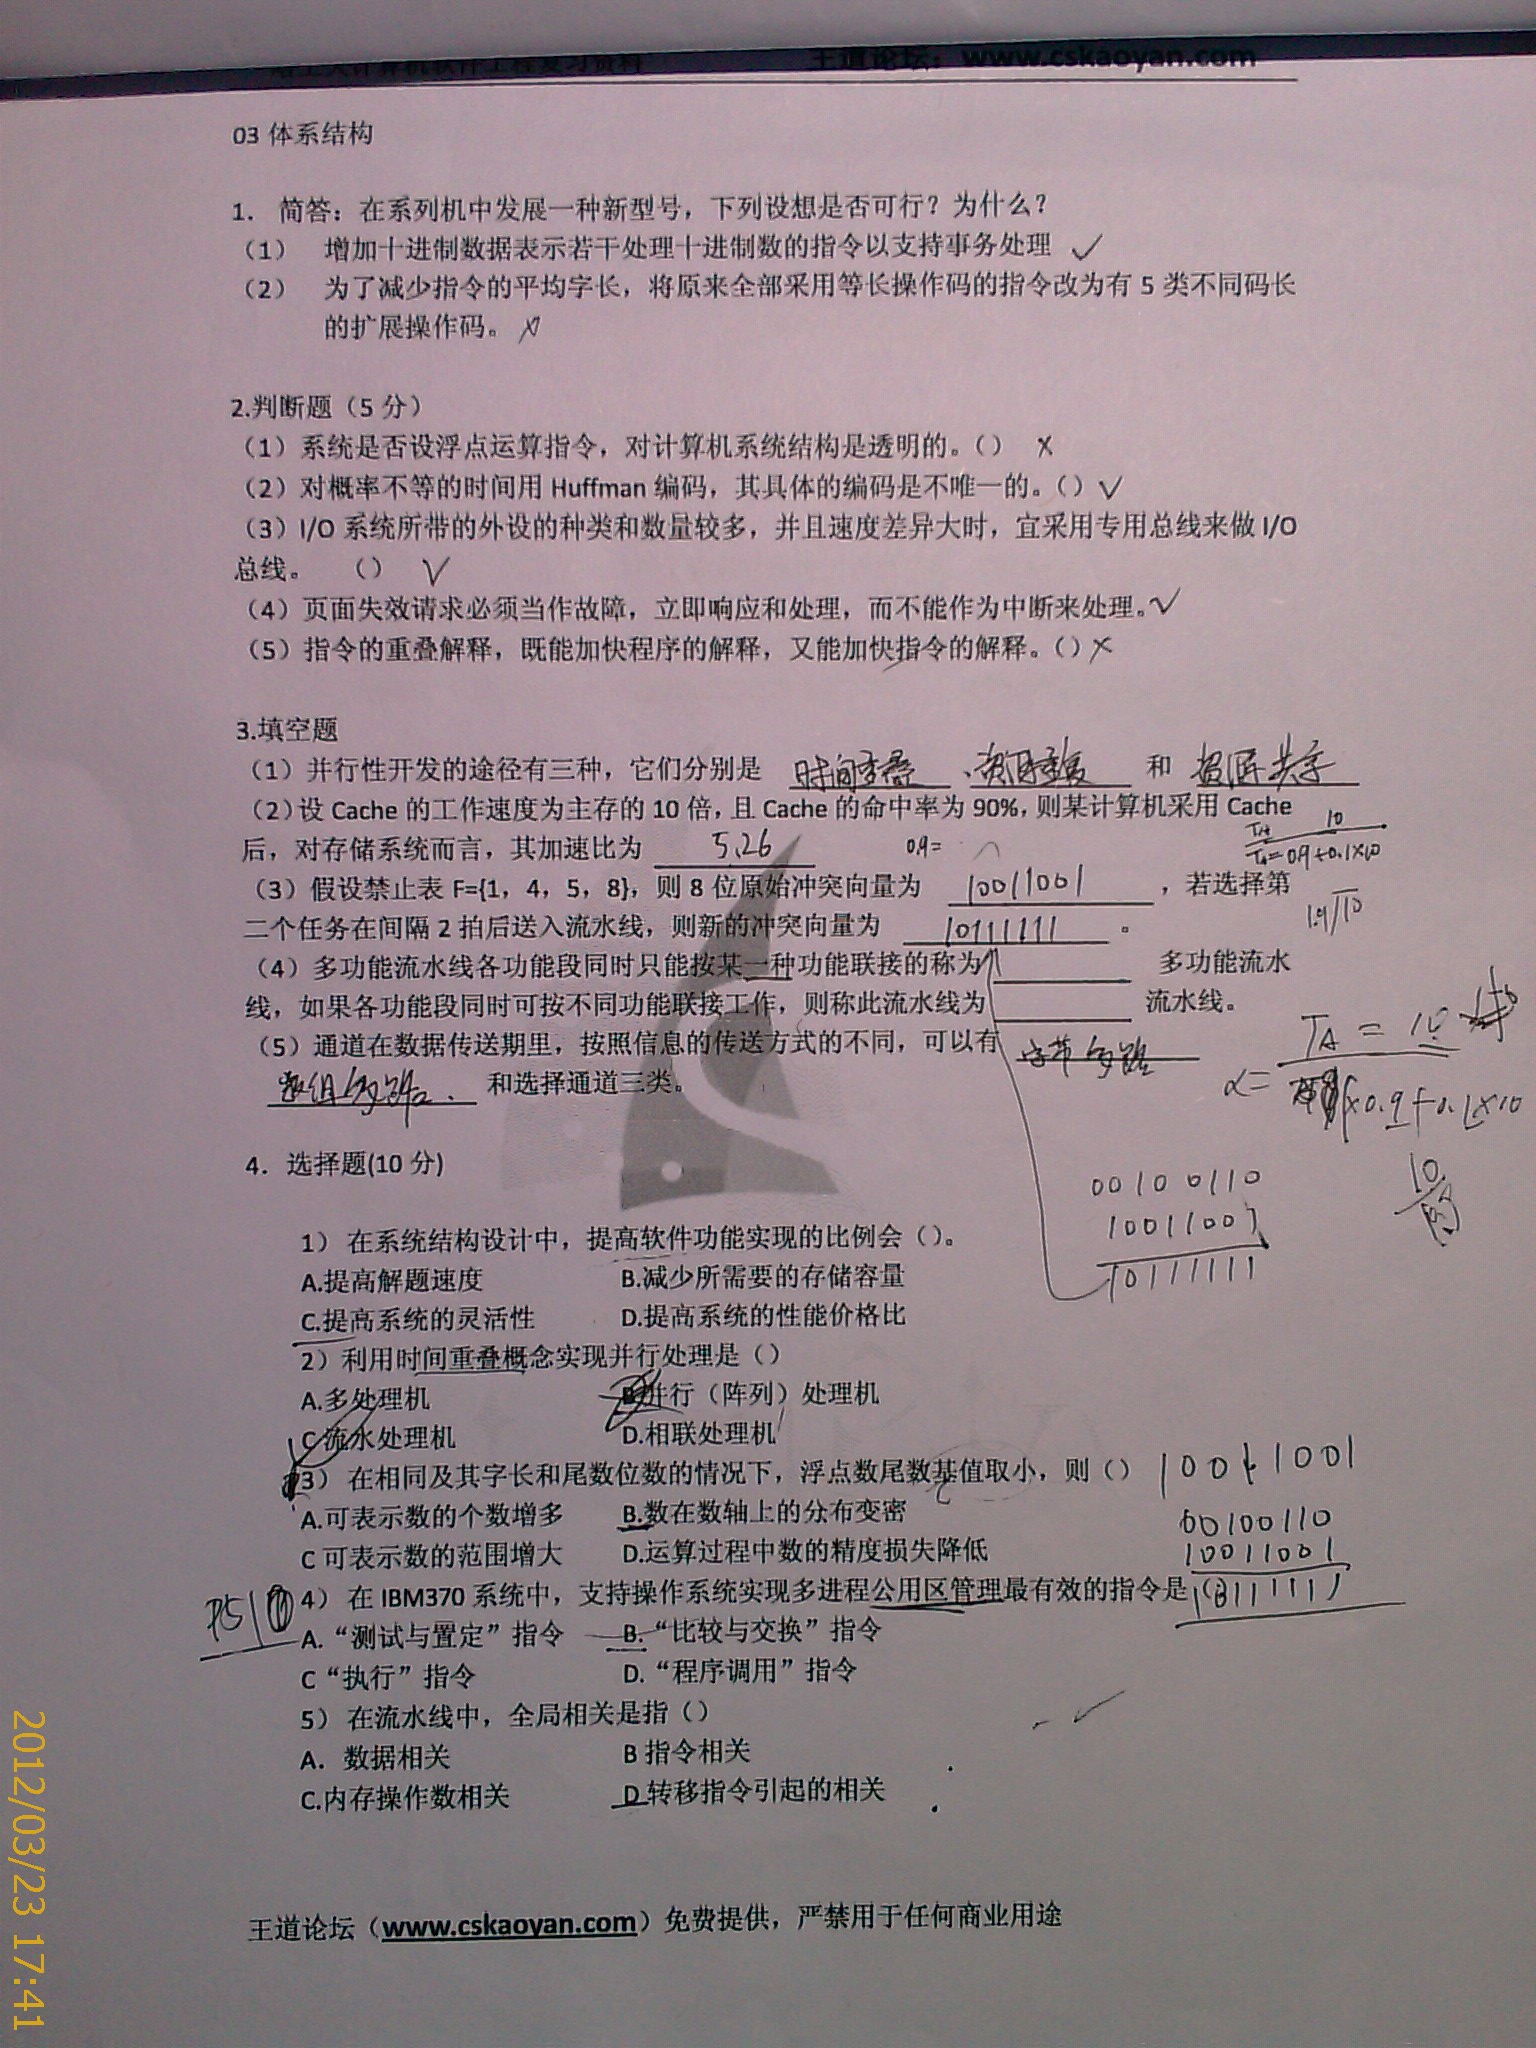 哈工大计算机软件工程复习资料 王道论坛：www.cskaoyan.com
03 体系结构
1. 简答：在系列机中发展一种新型号，下列设想是否可行？为什么？
（1） 增加十进制数据表示若干处理十进制数的指令以支持事务处理 ✓
（2） 为了减少指令的平均字长，将原来全部采用等长操作码的指令改为有 5 类不同码长
的扩展操作码。 ×
2.判断题（5 分）
（1）系统是否设浮点运算指令，对计算机系统结构是透明的。（） ×
（2）对概率不等的时间用 Huffman 编码，其具体的编码是不唯一的。（）✓
（3）I/O 系统所带的外设的种类和数量较多，并且速度差异大时，宜采用专用总线来做 I/O
总线。 （） ✓
（4）页面失效请求必须当作故障，立即响应和处理，而不能作为中断来处理。✓
（5）指令的重叠解释，既能加快程序的解释，又能加快指令的解释。（）×
3.填空题
（1）并行性开发的途径有三种，它们分别是 时间重叠 、资源重复 和 资源共享
（2）设 Cache 的工作速度为主存的 10 倍，且 Cache 的命中率为 90%，则某计算机采用 Cache
后，对存储系统而言，其加速比为 5.26 0.9=
10
0.9+0.1×10
（3）假设禁止表 F={1，4，5，8}，则 8 位原始冲突向量为 10011001 ，若选择第
二个任务在间隔 2 拍后送入流水线，则新的冲突向量为 10111111 。
1.9/10
（4）多功能流水线各功能段同时只能按某一种功能联接的称为 多功能流水
线，如果各功能段同时可按不同功能联接工作，则称此流水线为 流水线。
（5）通道在数据传送期里，按照信息的传送方式的不同，可以有 字节多路
数组多路、 和选择通道三类。
TA = 10
α=
×0.9+0.1×10
4. 选择题(10 分)
00100110
10011001
10111111
10
1）在系统结构设计中，提高软件功能实现的比例会（）。
A.提高解题速度 B.减少所需要的存储容量
C.提高系统的灵活性 D.提高系统的性能价格比
2）利用时间重叠概念实现并行处理是（）
A.多处理机 B并行（阵列）处理机
C 流水处理机 D.相联处理机
3）在相同及其字长和尾数位数的情况下，浮点数尾数基值取小，则（） 10011001
A.可表示数的个数增多 B.数在数轴上的分布变密
00100110
C 可表示数的范围增大 D.运算过程中数的精度损失降低
10011001
4）在 IBM370 系统中，支持操作系统实现多进程公用区管理最有效的指令是
A. “测试与置定”指令 B. “比较与交换”指令
C“执行”指令 D. “程序调用”指令
5）在流水线中，全局相关是指（）
A. 数据相关 B 指令相关
C.内存操作数相关 D 转移指令引起的相关
王道论坛（www.cskaoyan.com）免费提供，严禁用于任何商业用途
2012/03/23 17:41